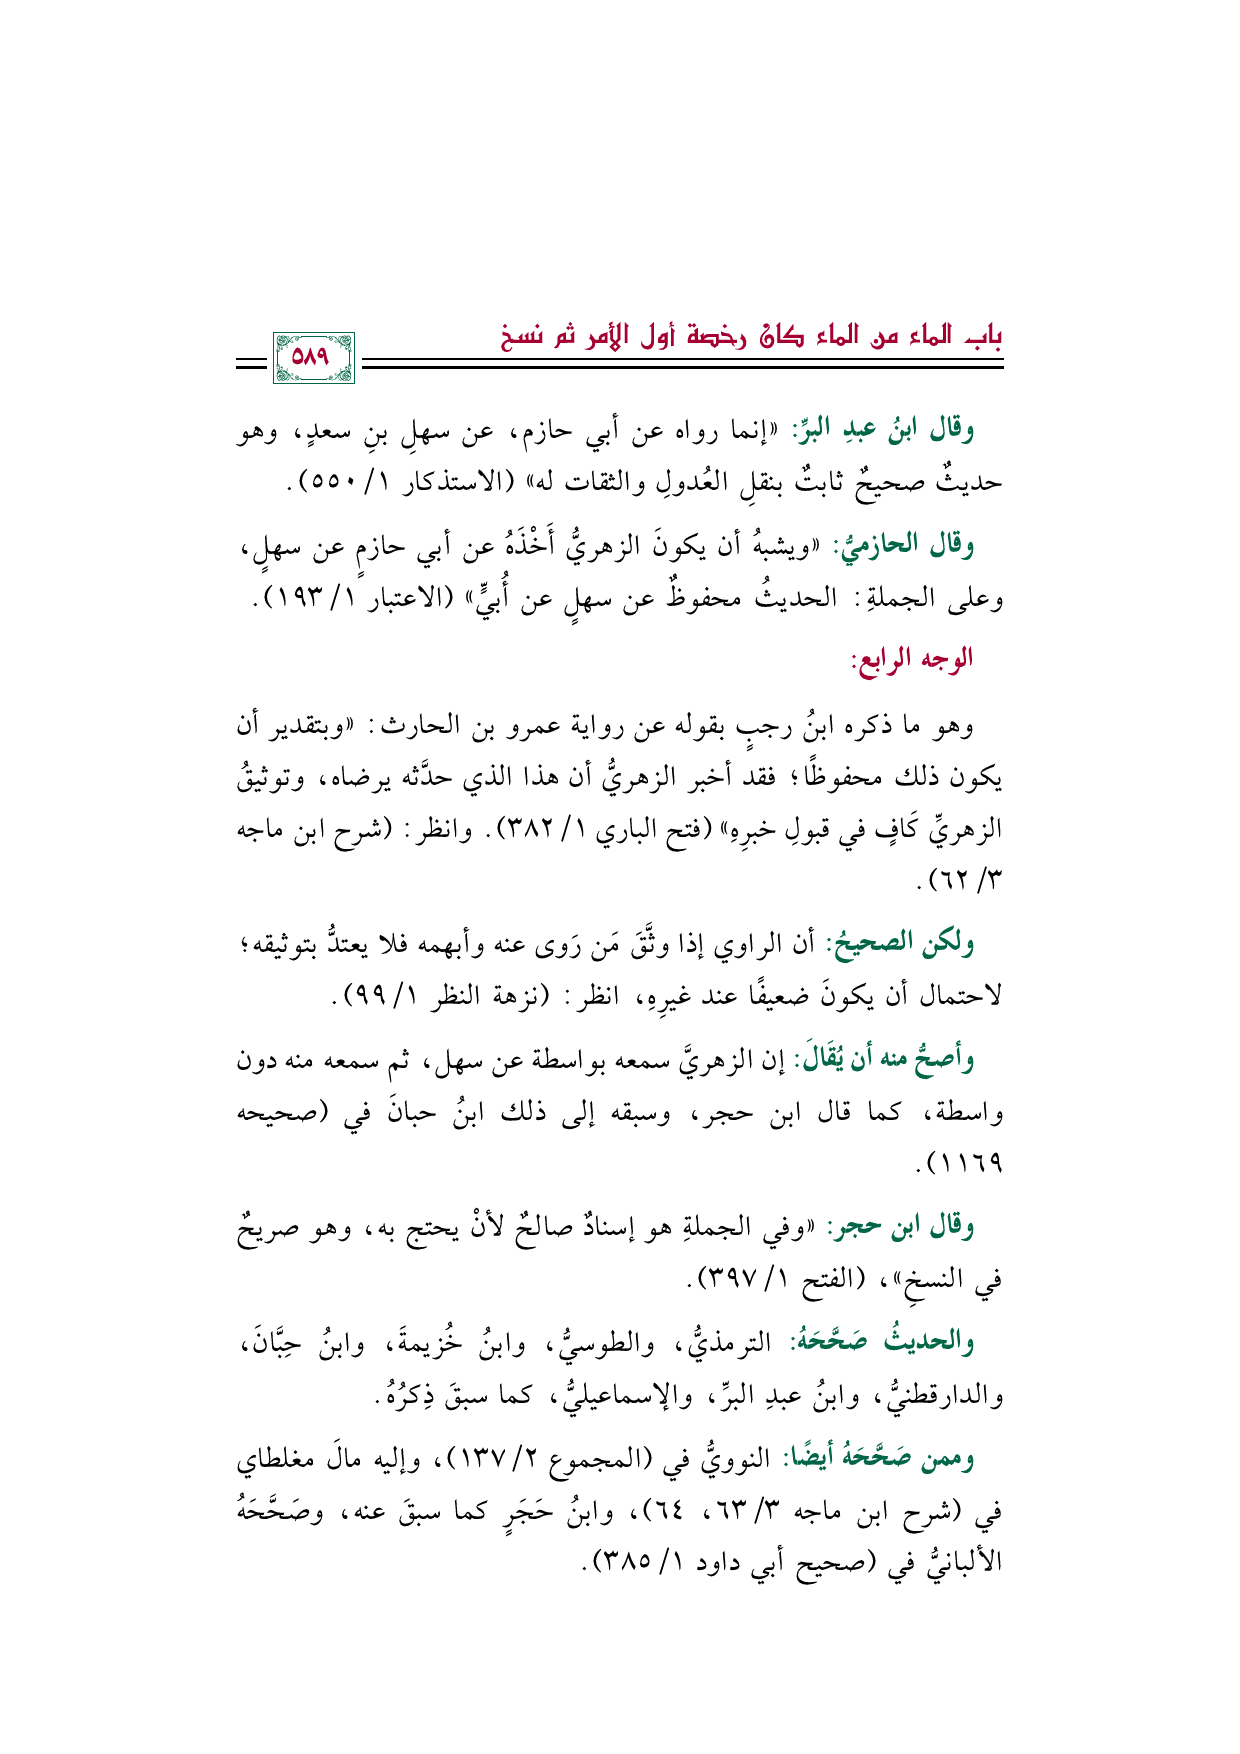 باب الماء من الماء كان رخصة أول الأمر ثم نسخ
٥٨٩
وقال ابنُ عبدِ البرِّ: «إنما رواه عن أبي حازم، عن سهلِ بنِ سعدٍ، وهو
حديثٌ صحيحٌ ثابتٌ بنقلِ العُدولِ والثقات له» (الاستذكار ١/ ٥٥٠).
وقال الحازميُّ: «ويشبهُ أن يكونَ الزهريُّ أَخْذَهُ عن أبي حازمٍ عن سهلٍ،
وعلى الجملةِ: الحديثُ محفوظٌ عن سهلٍ عن أُبيٍّ» (الاعتبار ١/ ١٩٣).
الوجه الرابع:
وهو ما ذكره ابنُ رجبٍ بقوله عن رواية عمرو بن الحارث: «وبتقدير أن
يكون ذلك محفوظًا؛ فقد أخبر الزهريُّ أن هذا الذي حدَّثه يرضاه، وتوثيقُ
الزهريِّ كَافٍ في قبولِ خبرِهِ» (فتح الباري ١/ ٣٨٢). وانظر: (شرح ابن ماجه
٣/ ٦٢).
ولكن الصحيحُ: أن الراوي إذا وثَّقَ مَن رَوى عنه وأبهمه فلا يعتدُّ بتوثيقه؛
لاحتمال أن يكونَ ضعيفًا عند غيرِهِ، انظر: (نزهة النظر ١/ ٩٩).
وأصحُّ منه أن يُقَالَ: إن الزهريَّ سمعه بواسطة عن سهل، ثم سمعه منه دون
واسطة، كما قال ابن حجر، وسبقه إلى ذلك ابنُ حبانَ في (صحيحه
١١٦٩).
وقال ابن حجر: «وفي الجملةِ هو إسنادٌ صالحٌ لأنْ يحتج به، وهو صريحٌ
في النسخِ»، (الفتح ١/ ٣٩٧).
والحديثُ صَحَّحَهُ: الترمذيُّ، والطوسيُّ، وابنُ خُزيمةَ، وابنُ حِبَّانَ،
والدارقطنيُّ، وابنُ عبدِ البرِّ، والإسماعيليُّ، كما سبقَ ذِكرُهُ.
وممن صَحَّحَهُ أيضًا: النوويُّ في (المجموع ٢/ ١٣٧)، وإليه مالَ مغلطاي
في (شرح ابن ماجه ٣/ ٦٣، ٦٤)، وابنُ حَجَرٍ كما سبقَ عنه، وصَحَّحَهُ
الألبانيُّ في (صحيح أبي داود ١/ ٣٨٥).